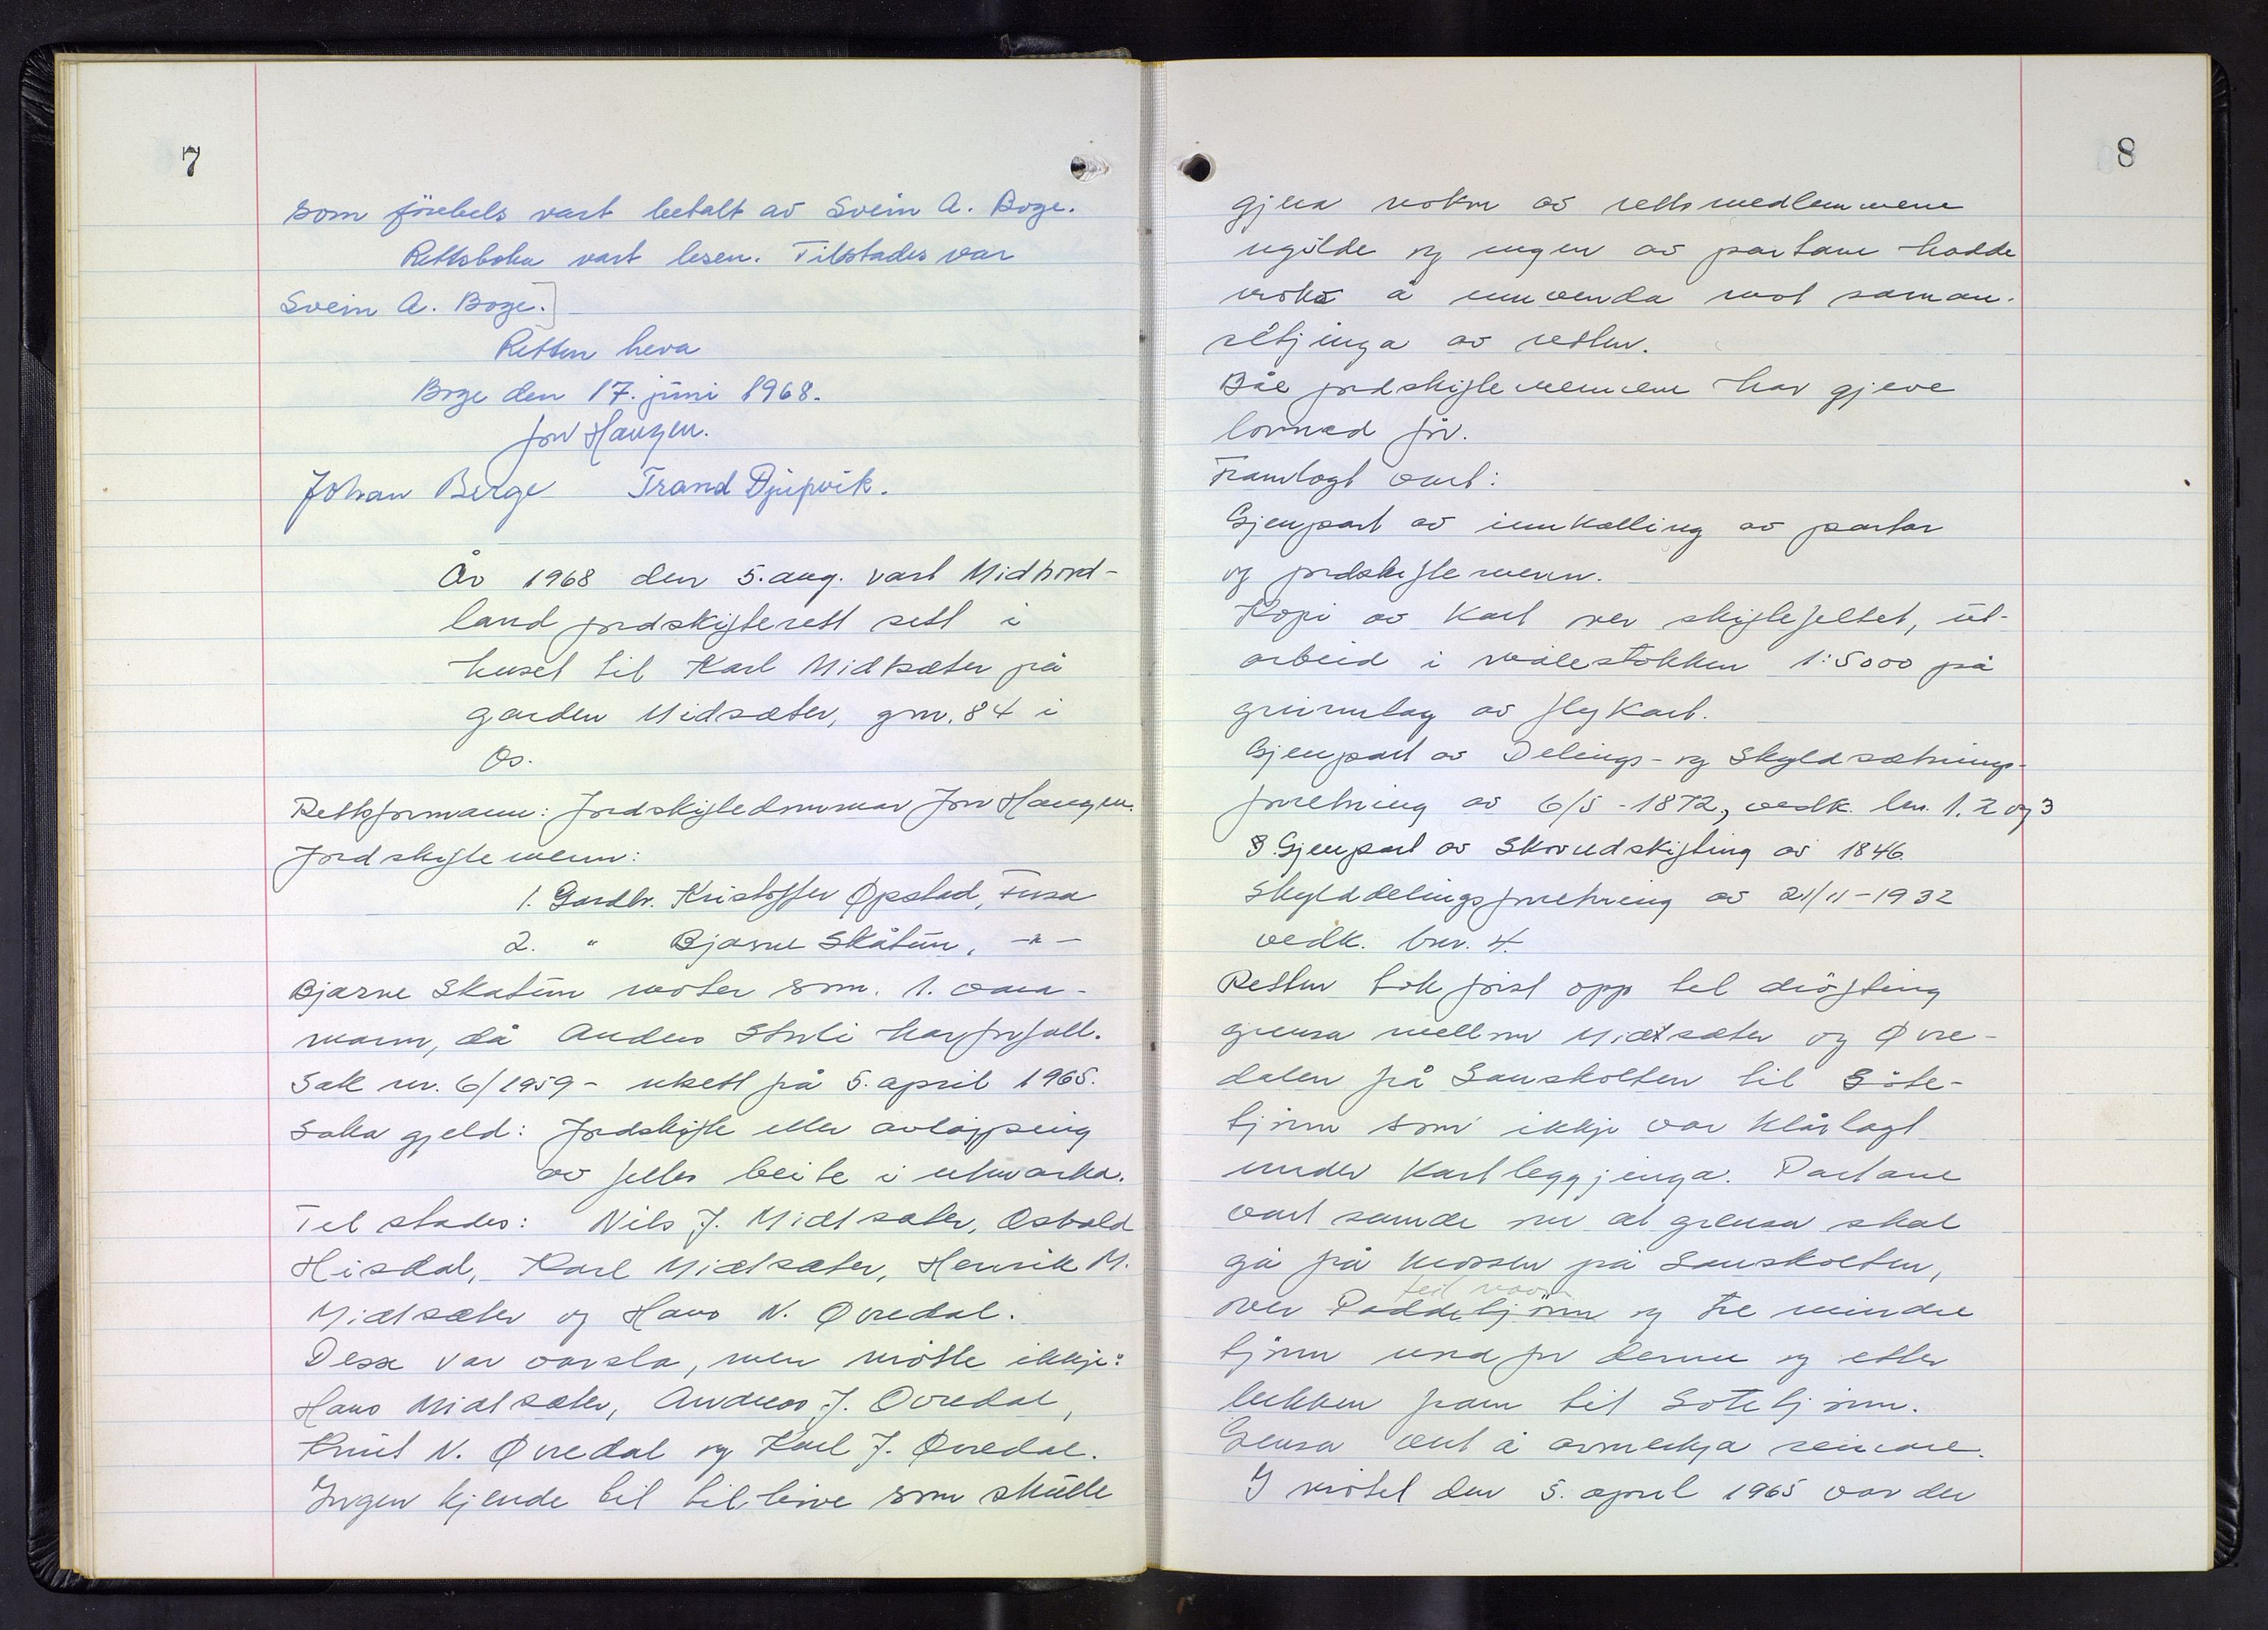 7
som förebels vart betalt av Svein A. Boge.
Rettsboka vart lesen. Tilstades var
Svein A. Boge.
Retten heva
Boge den 17. juni 1968.
Jon Haugen.
Johan Berge Trand Djupvik.
År 1968 den 5. aug. vart Midhord-
land jordskifterett sett i
huset til Karl Midtsæter på
garden Midsæter, gnr. 84 i
Os.
Rettsformann: Jordskiftedommar Jon Haugen.
Jordskiftemenn:
1. Gardbr. Kristoffer Opstad, Fusa
2. " Bjarne Skåtun, -"-
Bjarne Skatun møter som. 1. vara-
mann, då Anders Strli har forfall.
Sak nr. 6/1959 - utsett på 5. april 1965.
Saka gjeld: Jordskifte eller avløysing
av felles beite i utmarka.
Til stades: Nils J. Midtsæter, Osvald
Hisdal, Karl Midtsæter, Henrik M.
Midtsæter og Hans N. Øvredal.
Desse var varsla, men møtte ikkje:
Hans Midtsæter, Andreas J. Øvredal,
Knut N. Øvredal og Karl J. Øvredal.
Ingen kjende til tilhøve som skulle
8
gjera nokon av rettsmedlemmene
ugilde og ingen av partane hadde
noko å innvenda mot saman-
setjinga av retten.
Båe jordskiftemennene har gjeve
lovnad før.
Framlagt vart:
Gjenpart av innkalling av partar
og jordskiftemenn.
Kopi av kart over skiftefeltet, ut-
arbeid i målestokken 1:5000 på
grunnlag av flykart.
Gjenpart av Delings- og Skyldsætnings-
forretning av 6/5 - 1872, vedk. bnr. 1, 2 og 3
Gjenpart av Skovudskifting av 1846.
Skylddelingsforretning av 21/11 - 1932
vedk. bnr. 4.
Retten tok først opp til drøfting
grensa mellom Midtsæter og Øvre-
dalen på Sauskolten til Søte-
tjønn som ikkje var klårlagt
under kartleggjinga. Partane
vart samde om at grensa skal
gå frå krossen på Sauskolten,
til
over Paddetjønn og tre mindre
tjønn nedfor denne og etter
bekken fram til Søtetjønn.
Grensa vert å avmerkja seinare.
I møtet den 5. april 1965 var der